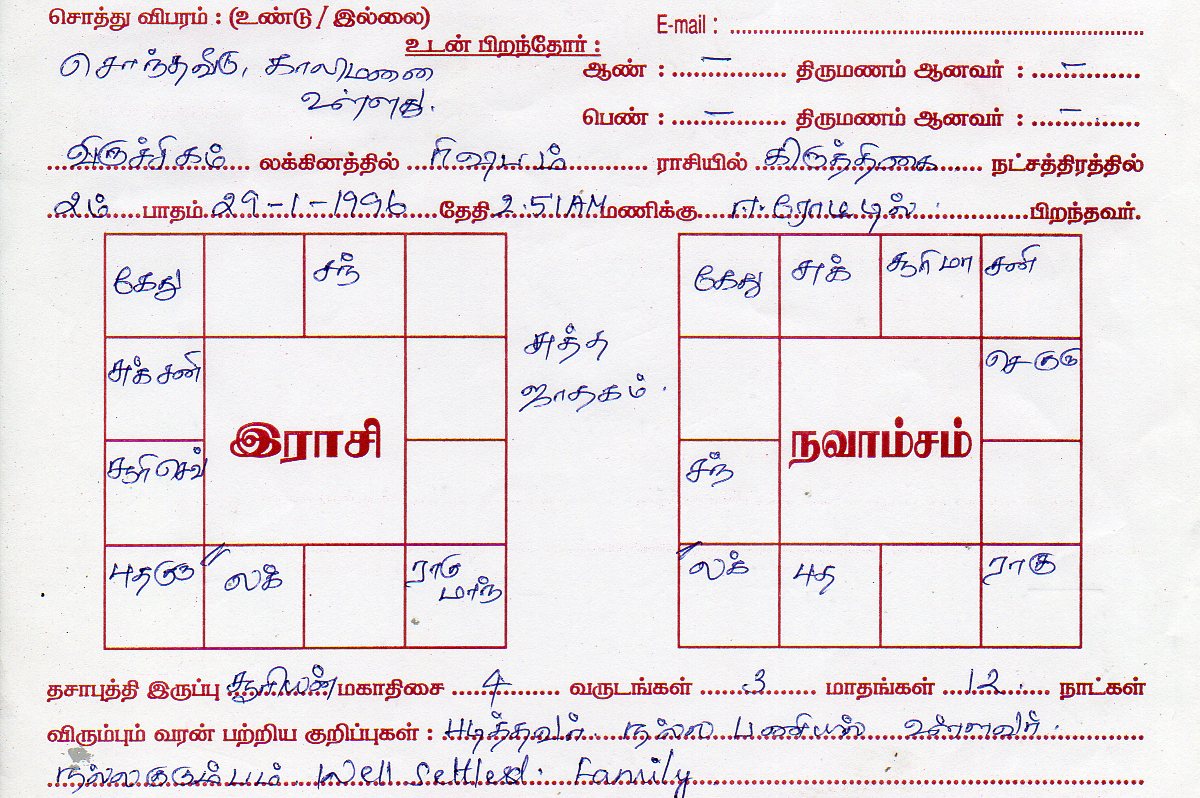 சொத்து விபரம் : (உண்டு / இல்லை)
E-mail :
சொந்தவீடு, காலிமனை
உள்ளது.
உடன் பிறந்தோர் :
ஆண் : – திருமணம் ஆனவர் : –
பெண் : – திருமணம் ஆனவர் : –
விருச்சிகம் லக்கினத்தில் ரிஷபம் ராசியில் கிருத்திகை நட்சத்திரத்தில்
2ம் பாதம் 29-1-1996 தேதி 2.51AM மணிக்கு ஈரோட்டில் பிறந்தவர்.
கேது
சந்
சுக் சனி
சூரி செவ்
புத குரு
லக்
ராகு
மாந்
இராசி
சுத்த
ஜாதகம்.
கேது
சுக்
சூரி மா
சனி
செ குரு
சந்
லக்
புத
ராகு
நவாம்சம்
தசாபுத்தி இருப்பு சூரியன் மகாதிசை 4 வருடங்கள் 3 மாதங்கள் 12 நாட்கள்
விரும்பும் வரன் பற்றிய குறிப்புகள் : படித்தவர். நல்ல பணியில் உள்ளவர்.
நல்லகுடும்பம். Well Settled. Family